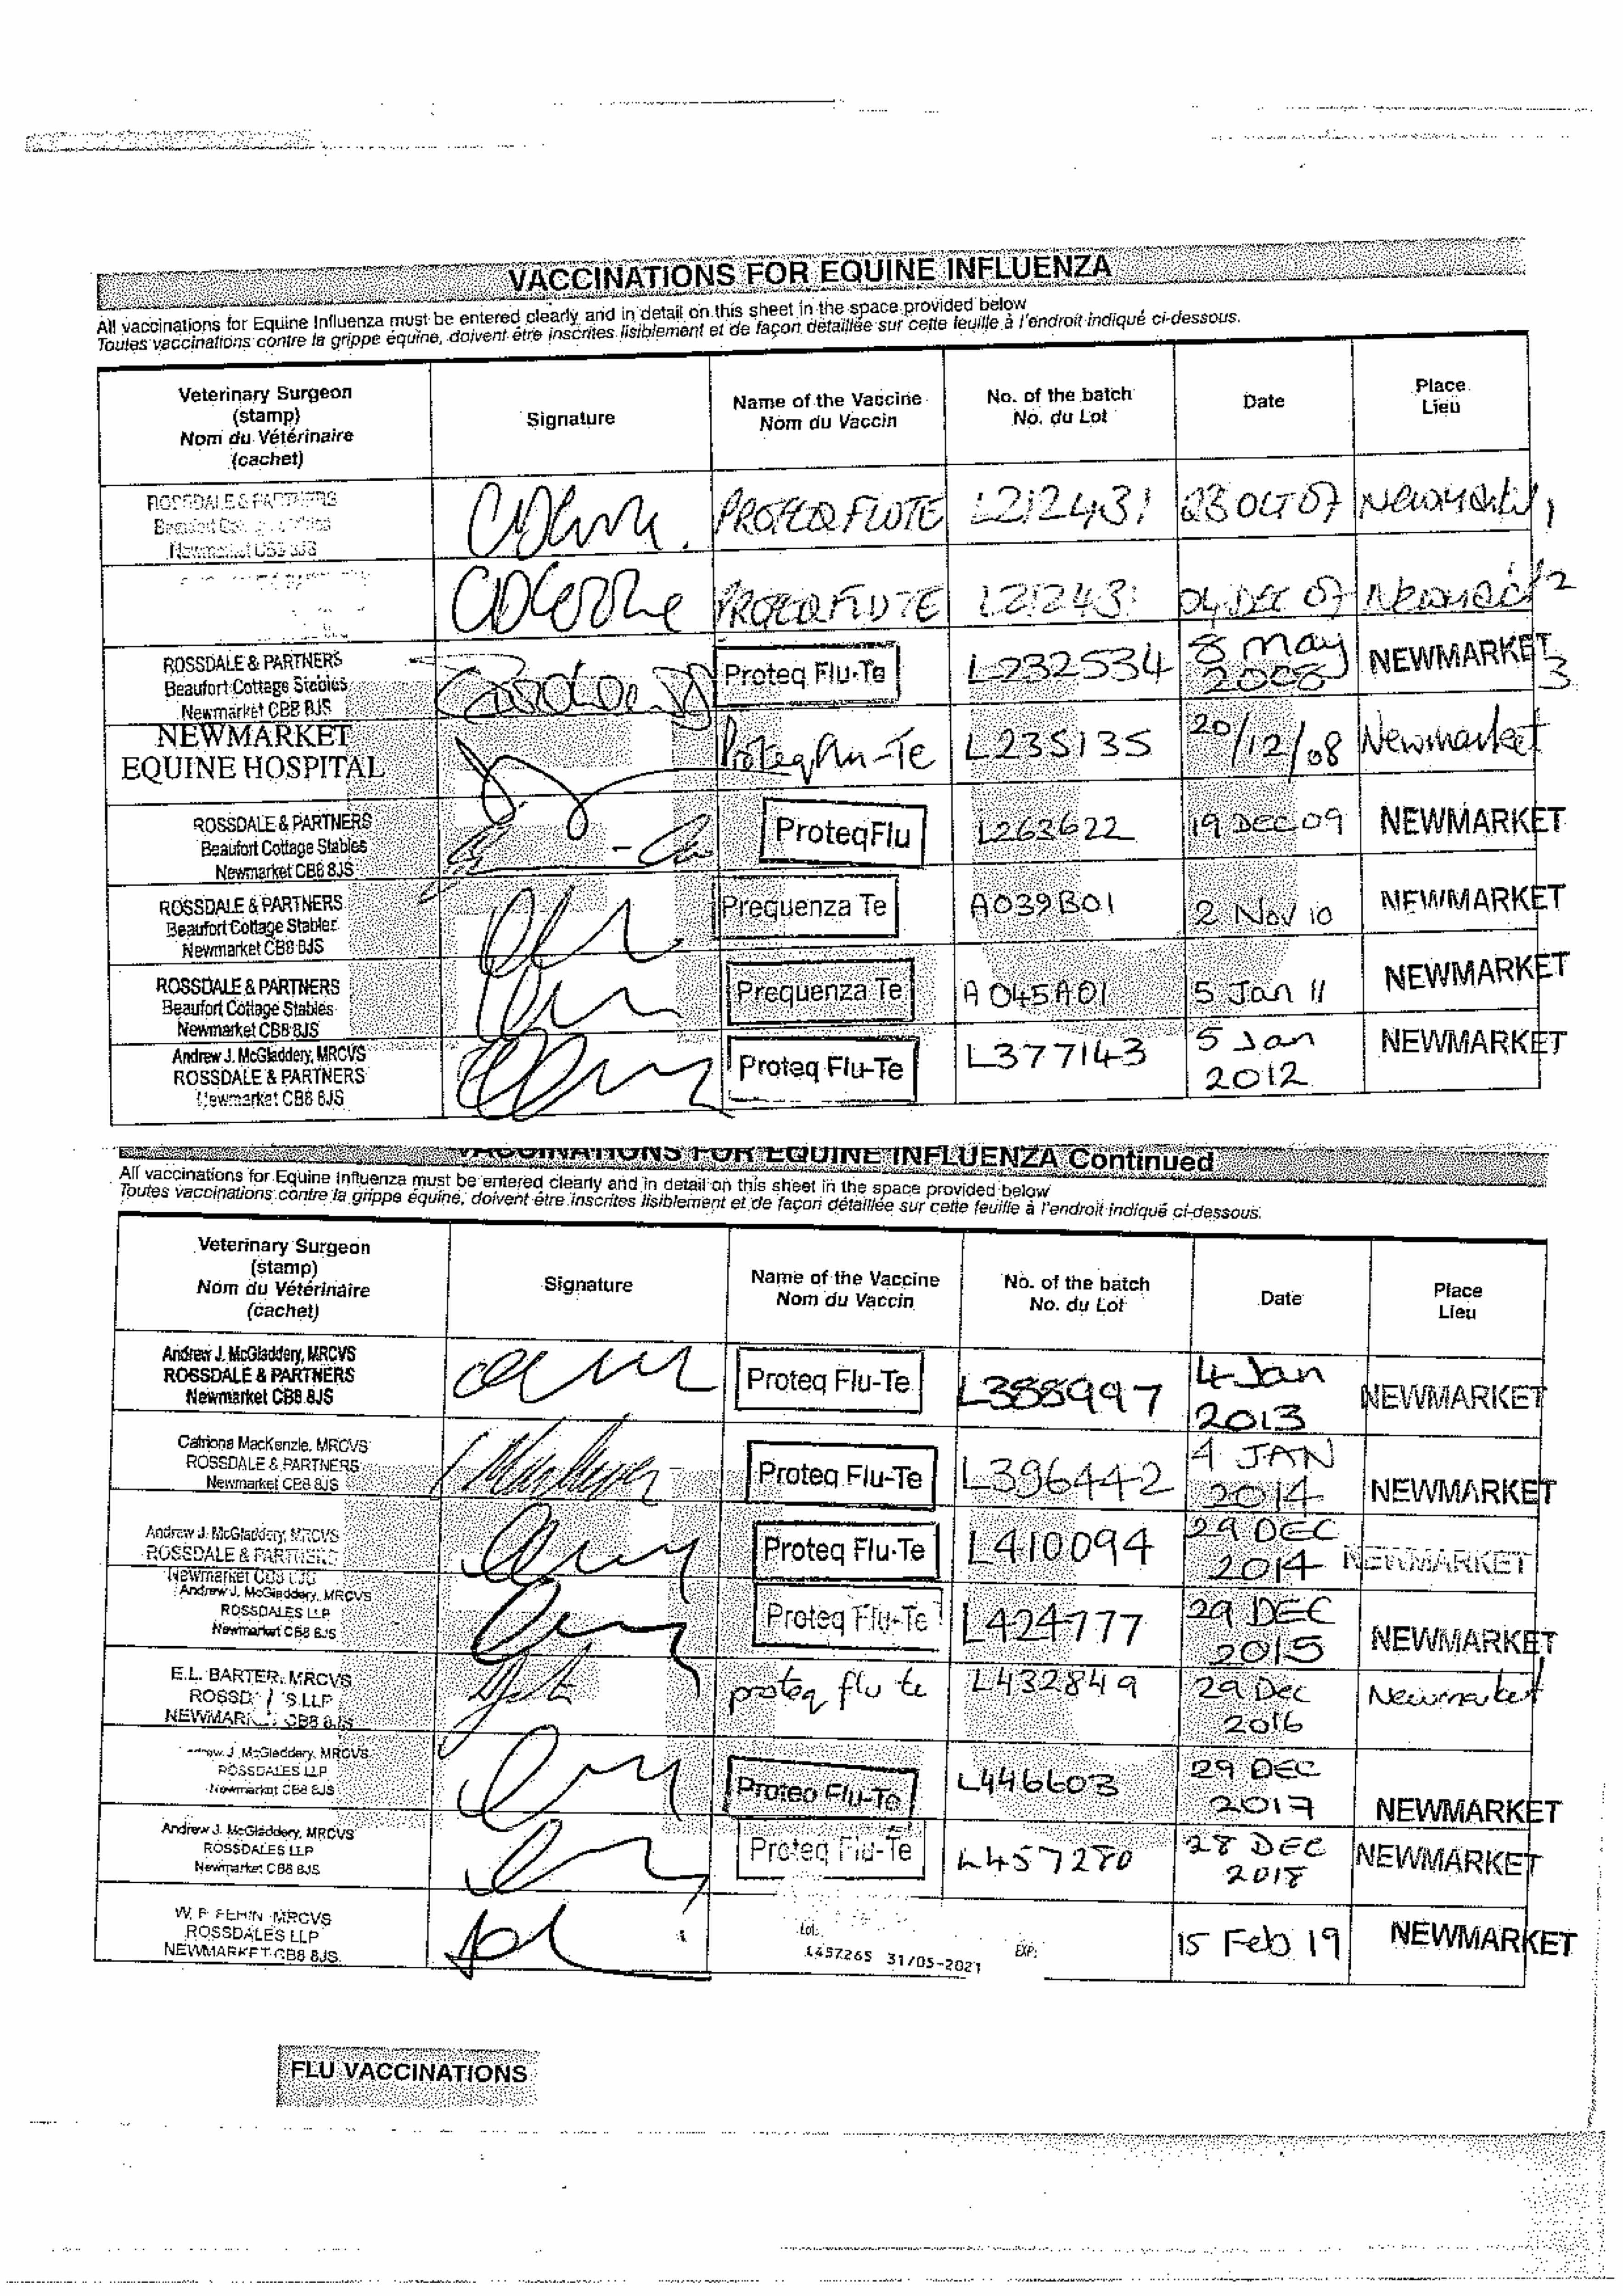 VACCINATIONS FOR EQUINE INFLUENZA
All vaccinations for Equine Influenza must be entered clearly and in detail on this sheet in the space provided below
Toutes vaccinations contre la grippe équine, doivent être inscrites lisiblement et de façon détaillée sur cette feuille à l'endroit indiqué ci-dessous.
Veterinary Surgeon
(stamp)
Nom du Vétérinaire
(cachet)
Signature
Name of the Vaccine
Nom du Vaccin
No. of the batch
No. du Lot
Date
Place
Lieu
ROSSDALE & PARTNERS
Beaufort
Newmarket CB8 8JS
PROTEQ FLUTE
L212431
OCT 07
Newmarket 1
PROTEQ FLUTE
L212431
04 DEC 07
Newmarket 2
ROSSDALE & PARTNERS
Beaufort Cottage Stables
Newmarket CB8 8JS
Proteq Flu-Te
L232534
8 May
2008
NEWMARKET
3
NEWMARKET
EQUINE HOSPITAL
Proteq Flu-Te
L235135
20/12/08
Newmarket
ROSSDALE & PARTNERS
Beaufort Cottage Stables
Newmarket CB8 8JS
ProteqFlu
L263622
19 Dec 09
NEWMARKET
ROSSDALE & PARTNERS
Beaufort Cottage Stables
Newmarket CB8 8JS
Prequenza Te
A039B01
2 Nov 10
NEWMARKET
ROSSDALE & PARTNERS
Beaufort Cottage Stables
Newmarket CB8 8JS
Prequenza Te
A045A01
5 Jan 11
NEWMARKET
Andrew J. McGladdery, MRCVS
ROSSDALE & PARTNERS
Newmarket CB8 8JS
Proteq Flu-Te
L377143
5 Jan
2012
NEWMARKET
VACCINATIONS FOR EQUINE INFLUENZA Continued
All vaccinations for Equine Influenza must be entered clearly and in detail on this sheet in the space provided below
Toutes vaccinations contre la grippe équine, doivent être inscrites lisiblement et de façon détaillée sur cette feuille à l'endroit indiqué ci-dessous.
Veterinary Surgeon
(stamp)
Nom du Vétérinaire
(cachet)
Signature
Name of the Vaccine
Nom du Vaccin
No. of the batch
No. du Lot
Date
Place
Lieu
Andrew J. McGladdery, MRCVS
ROSSDALE & PARTNERS
Newmarket CB8 8JS
Proteq Flu-Te
4 Jan
2013
NEWMARKET
Catriona MacKenzie, MRCVS
ROSSDALE & PARTNERS
Newmarket CB8 8JS
Proteq Flu-Te
L396442
4 JAN
2014
NEWMARKET
Andrew J. McGladdery, MRCVS
ROSSDALE & PARTNERS
Newmarket CB8 8JS
Proteq Flu-Te
L410094
29 DEC
2014
NEWMARKET
Andrew J. McGladdery, MRCVS
ROSSDALES LLP
Newmarket CB8 8JS
Proteq Flu-Te
L424777
29 DEC
2015
NEWMARKET
E.L. BARTER, MRCVS
ROSSD S LLP
NEWMARK CB8 8JS
proteq flu te
L432849
29 Dec
2016
Newmarket
drew J. McGladdery, MRCVS
ROSSDALES LLP
Newmarket CB8 8JS
Proteq Flu-Te
L446603
29 DEC
2017
NEWMARKET
Andrew J. McGladdery, MRCVS
ROSSDALES LLP
Newmarket CB8 8JS
Proteq Flu-Te
L457280
28 DEC
2018
NEWMARKET
W. F. FEHIN MRCVS
ROSSDALES LLP
NEWMARKET CB8 8JS
Lot:
EXP:
L457265 31/05-2021
15 Feb 19
NEWMARKET
FLU VACCINATIONS